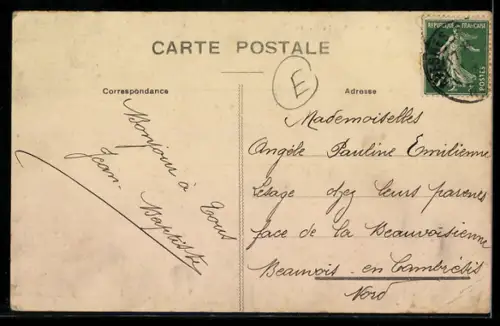 CARTE POSTALE
REPUBLIQUE FRANÇAISE
POSTES
E
Correspondance
Bonjour à Tous
Jean-Baptiste
Adresse
Mademoiselles
Angèle Pauline Emilienne
Lesage chez leurs parents
face de la Beauvoisienne
Beauvois-en-Cambrésis
Nord